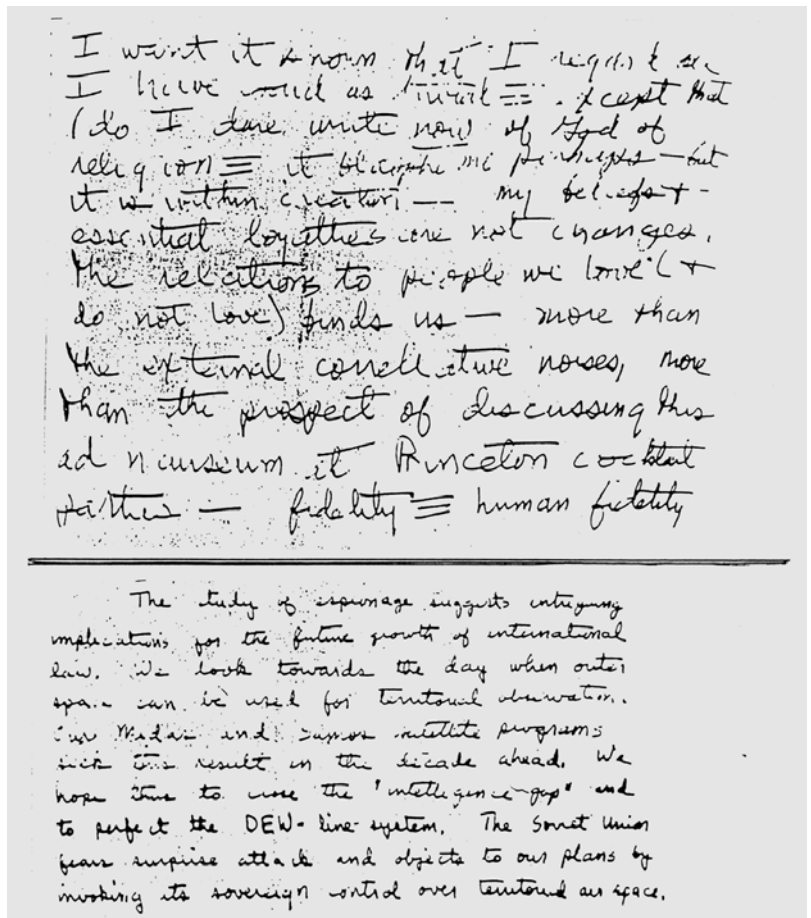 I want it known that I regard
I have said as . except that
(do I dare write now of God of
religion ≡ it principles — but
it is within creation — my beliefs + -
essential loyalties are not changes.
the relations to people we love (+
do not love) binds us — more than
the external noises, more
than the prospect of discussing this
ad nauseum at Princeton cocktail
parties — fidelity ≡ human fidelity
The study of espionage suggests intriguing
implications for the future growth of international
law. We look towards the day when outer
space can be used for territorial observation.
Our Midas and Samos satellite programs
seek this result in the decade ahead. We
hope thus to close the "intelligence-gap" and
to perfect the DEW-line-system. The Soviet Union
fears surprise attack and objects to our plans by
invoking its sovereign control over territorial air space.